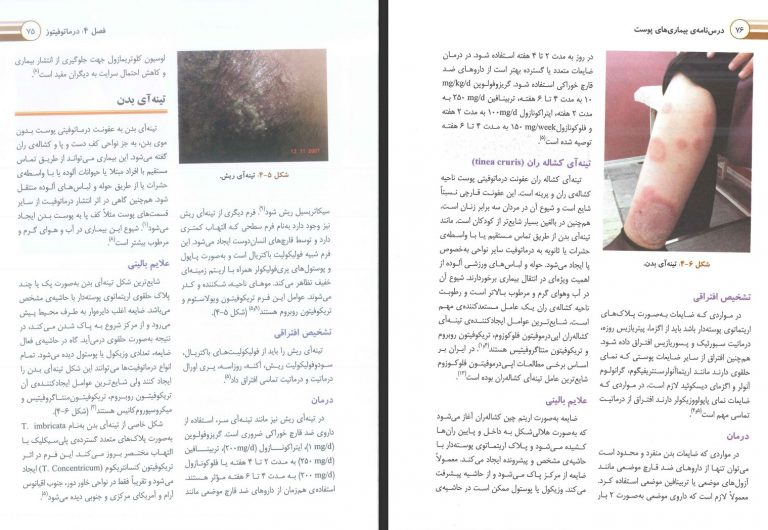 فصل ۴: درماتوفیتوز ۷۵
شکل ۵-۴. تینه‌آی ریش.
سیکاتریسیل ریش شود(۹). فرم دیگری از تینه‌آی ریش
نیز وجود دارد به‌نام فرم سطحی که التهاب کمتری
دارد و توسط قارچ‌های انسان‌دوست ایجاد می‌شود. این
فرم شبیه فولیکولیت باکتریال است و به‌صورت پاپول
و پوستول‌های پری‌فولیکولار همراه با اریتم زمینه‌ای
خفیف تظاهر می‌کند. موهای ناحیه، شکننده و کدر
می‌شوند. عوامل این فرم تریکوفیتون ویولاسئوم و
تریکوفیتون روبروم هستند (شکل ۵-۴).
تشخیص افتراقی
تینه‌آی ریش را باید از فولیکولیت‌های باکتریال،
سودوفولیکولیت ریش، آکنه، روزاسه، پری اورال
درماتیت و درماتیت تماسی افتراق داد(۵).
درمان
در تینه‌آی ریش نیز مانند تینه‌آی سر، استفاده از
داروی ضد قارچ خوراکی ضروری است. گریزوفولوین
(۱ mg/d)، ایتراکنازول (۲۰۰ mg/d)، تربینافین
(۲۵۰ mg/d) به مدت ۲ تا ۴ هفته یا فلوکونازول
(۲۰۰ mg/d) به مدت ۴ تا ۶ هفته مؤثر هستند.
استفاده‌ی هم‌زمان از داروهای ضد قارچ موضعی مانند
لوسیون کلوتریمازول جهت جلوگیری از انتشار بیماری
و کاهش احتمال سرایت به دیگران مفید است(۸).
تینه‌آی بدن
تینه‌آی بدن به عفونت درماتوفیتی پوست بدون
موی بدن، به جز نواحی کف دست و پا و کشاله‌ی ران
گفته می‌شود. این بیماری می‌تواند از طریق تماس
مستقیم با افراد مبتلا یا حیوانات آلوده یا با واسطه‌ی
حشرات یا از طریق حوله و لباس‌های آلوده منتقل
شود. هم‌چنین گاهی در اثر انتشار درماتوفیت از سایر
قسمت‌های پوست مثلاً کف پا به پوست بدن ایجاد
می‌شود. شیوع این بیماری در آب و هوای گرم و
مرطوب بیشتر است(۸).
علایم بالینی
شایع‌ترین شکل تینه‌آی بدن به‌صورت یک یا چند
پلاک حلقوی اریتماتوی پوسته‌دار با حاشیه‌ی مشخص
می‌باشد. ضایعه اغلب دایره‌وار به طرف محیط پیش
می‌رود و از مرکز شروع به پاک شدن می‌کند، در
نتیجه به‌صورت حلقوی درمی‌آید. گاه در حاشیه‌ی فعال
ضایعه، تعدادی وزیکول یا پوستول دیده می‌شود. تمام
انواع درماتوفیت‌ها می توانند این شکل تینه‌آی بدن را
ایجاد کنند ولی شایع‌ترین عوامل ایجادکننده‌ی آن
تریکوفیتون روبروم، تریکوفیتون‌منتاگروفیتیس و
میکروسپوروم‌کانیس هستند (شکل ۶-۴).
شکل خاصی از تینه‌آی بدن به‌نام T. imbricata
به‌صورت پلاک‌های متعدد گسترده‌ی پلی‌سیکلیک با
التهاب مختصر بروز می‌کند. این فرم در اثر
تریکوفیتون کنسانتریکوم (T. Concentricum) ایجاد
می‌شود و تقریباً فقط در نواحی خاور دور، جنوب اقیانوس
آرام و آمریکای مرکزی و جنوبی دیده می‌شود(۵).
۷۶ درس‌نامه‌ی بیماری‌های پوست
شکل ۶-۴. تینه‌آی بدن.
تشخیص افتراقی
در مواردی که ضایعات به‌صورت پلاک‌های
اریتماتوی پوسته‌دار باشد باید از اگزما، پیتریازیس روزه،
درماتیت سبورئیک و پسوریازیس افتراق داده شود.
هم‌چنین افتراق از سایر ضایعات پوستی که نمای
حلقوی دارند مانند اریتماآنولارسنتریفیگوم، گرانولوم
آنولر و اگزمای دیسکوئید لازم است. در مواردی که
ضایعات نمای پاپولووزیکولر دارند افتراق از درماتیت
تماسی مهم است.
درمان
در مواردی که ضایعات بدن منفرد و محدود است
می‌توان تنها از داروهای ضد قارچ موضعی مانند
آزول‌های موضعی یا تربینافین موضعی استفاده کرد.
معمولاً لازم است که داروی موضعی به‌صورت ۲ بار
در روز به مدت ۲ تا ۴ هفته استفاده شود. در درمان
ضایعات متعدد یا گسترده بهتر است از داروهای ضد
قارچ خوراکی استفاده شود. گریزوفولوین mg/kg/d
۱۰ به مدت ۴ تا ۶ هفته، تربینافین ۲۵۰ mg/d به
مدت ۲ هفته، ایتراکونازول ۱۰۰ mg/d به مدت ۲ هفته
و فلوکونازول ۱۵۰ mg/week به مدت ۴ تا ۶ هفته
توصیه شده است(۵).
تینه‌آی کشاله ران (tinea cruris)
تینه‌آی کشاله ران عفونت درماتوفیتی پوست ناحیه
کشاله‌ی ران و پرینه است. این عفونت قارچی نسبتاً
شایع است و شیوع آن در مردان سه برابر زنان است.
هم‌چنین در بالغین بسیار شایع‌تر از کودکان است. مانند
تینه‌آی بدن از طریق تماس مستقیم یا با واسطه‌ی
حشرات یا ثانویه به درماتوفیت سایر نواحی به‌خصوص
پا ایجاد می‌شود. حوله و لباس‌های ورزشی آلوده از
اهمیت ویژه‌ای در انتقال بیماری برخوردارند. شیوع آن
در آب وهوای گرم و مرطوب بالاتر است و رطوبت
ناحیه کشاله‌ی ران یک عامل مستعدکننده‌ی مهم
است. شایع‌ترین عوامل ایجادکننده‌ی تینه‌آی
کشاله‌ران اپی‌درموفیتون فلوکوزوم، تریکوفیتون روبروم
و تریکوفیتون متاگروفیتیس هستند. در ایران بر
اساس برخی مطالعات اپی‌درموفیتون فلوکوزوم
شایع‌ترین عامل تینه‌آی کشاله‌ران بوده است(۱۳).
علایم بالینی
ضایعه به‌صورت اریتم چین کشاله‌ران آغاز می‌شود
که به‌صورت هلالی‌شکل به داخل و پایین ران‌ها
کشیده می‌شود و پلاک اریتماتوی پوسته‌دار با
حاشیه‌ی مشخص و پیشرونده ایجاد می‌کند. معمولاً
ضایعه از مرکز پاک می‌شود و از حاشیه پیشرفت
می‌کند. وزیکول یا پوستول ممکن است در حاشیه‌ی